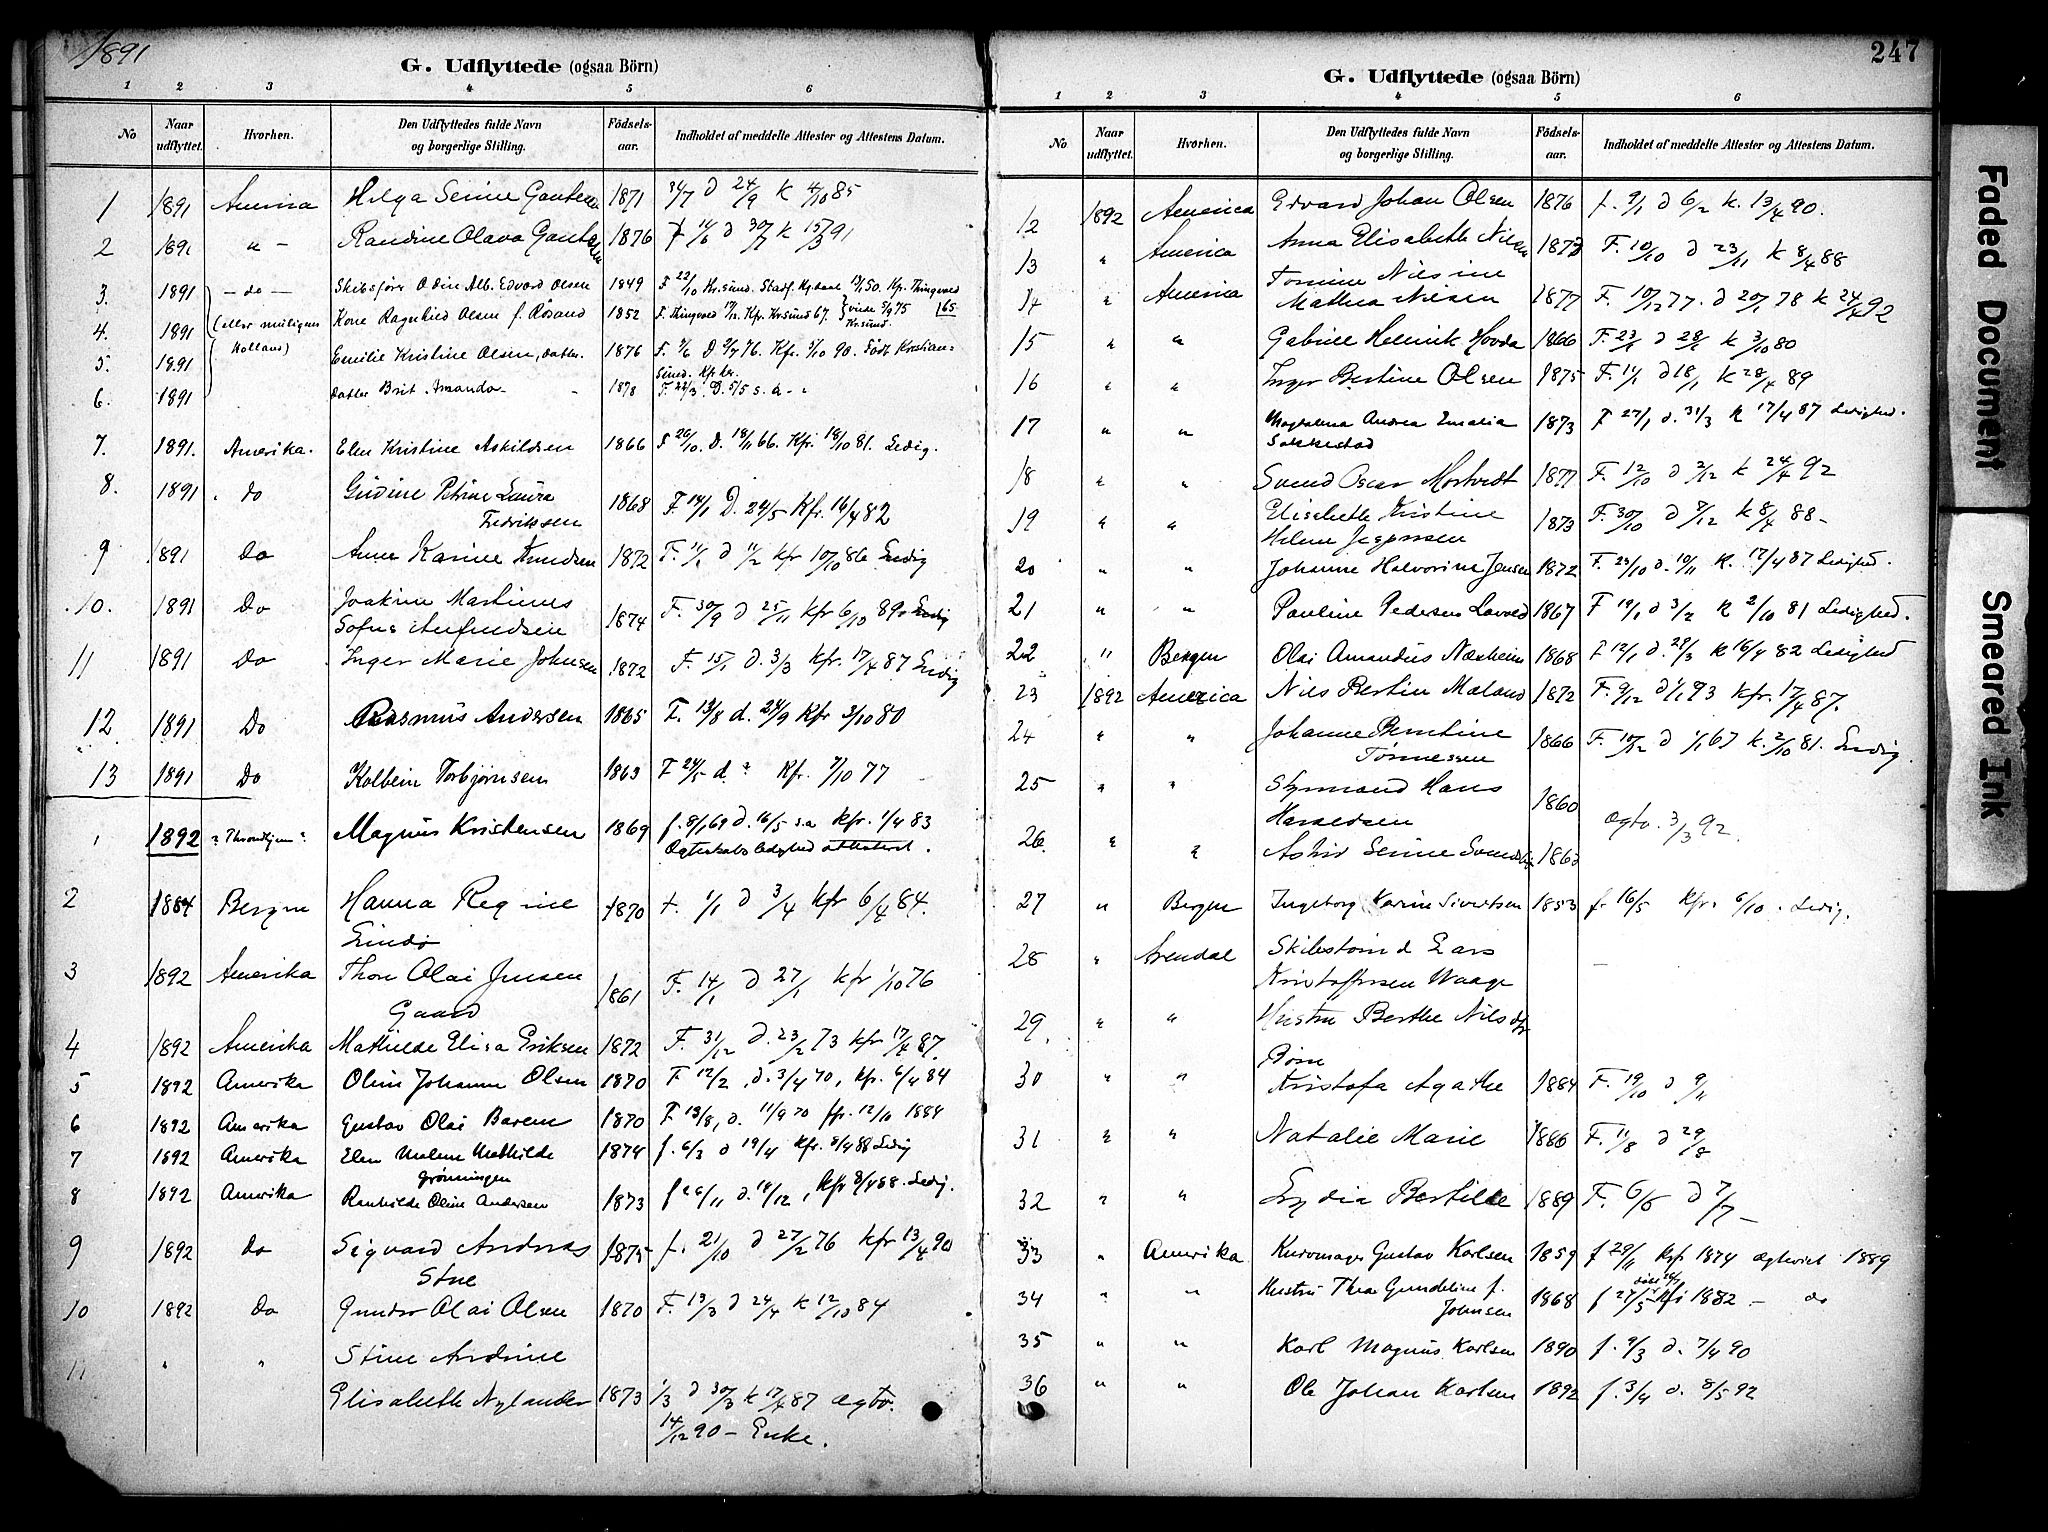 1891
G. Udflyttede (ogsaa Börn)
1 2 3 4 5 6
No Naar udflyttet. Hvorhen. Den Udflyttedes fulde Navn og borgerlige Stilling. Födsels-aar. Indholdet af meddelte Attester og Attestens Datum.
1 1891 America Helga Serine 1871 d 24/9 k 4/10 85
2 1891 " - Randine Olava 1876 f 11/6 d 30/7 k 15/3 91
3. 1891 - do - Skibsfører Odin Alb. Edvard Olsen 1849 F. 22/10 Kr.sund. Stadf. 13/1 50. Kf. Thingvold
4. 1891 (eller muligens Kone Ragnhild Olsen f. Røsand 1852 F. Thingvold 17/12. Kfr. Kr.sund 67. } viede 5/9 75 165
Holland) Kr.sund.
5. 1891 Emilie Kristine Olsen, datter 1876 F. 2/6 D. 9/7 76. Kfr. 5/10 90. Født Kristian-
sund. Kfr. her.
6. 1891 datter Brit Amanda - 1878 F. 22/3. D. 5/5 s. a - "
7. 1891. Amerika. Elen Kristine Askildsen 1866 F 26/10. D. 18/11 66. Kfr. 18/10 81. Ledig.
8. 1891 . do Gudine Petrine Laura
Fedriksen 1868 F. 14/1 D. 24/5 Kfr. 16/4 82
9 1891 Do Anne Karine Knudsen 1872 F. 11/1 d 11/2 kfr 10/10 86 Ledig
10. 1891 Do Joakim Martinus
Sofus Anfindsen 1874 F. 30/9 d 25/11 kfr 6/10 89 Ledig
11 1891 Do Inger Marie Johnsen 1872 F. 15/1 d. 3/3 kfr. 17/4 87 Ledig
12 1891 Do Rasmus Andersen 1865 F. 13/8 d. 24/9 Kfr 3/10 80
13 1891 Do Kolbein Torbjørnsen 1863 F 24/5 d. " Kfr. 7/10 77
1 1892 "Throndhjem" Magnus Kristensen 1869 f. 8/1 69 d. 16/5 s.a Kfr. 1/4 83
Ægteskabsledighed attesteret.
2 1884 Bergen Hanna Regine
Lindø 1870 f. 1/1 d 3/4 kfr 6/4 84.
3 1892 Amerika Thore Olai Jensen
Gaard 1861 F. 14/1 d 27/1 kfr 1/10 76
4 1892 Amerika Mathilde Elisa Eriksen 1872 F. 31/12 d. 23/2 73 kfr. 17/4 87.
5 1892 Amerika Oline Johanne Olsen 1870 F 12/2 . d. 3/4 70, kfr. 6/4 84
6 1892 Amerika Gustav Olai 1870 F. 13/8, d. 11/9 70 kfr. 12/10 1884
7 1892 Amerika Elen Malene Mathilde
Grønningen 1874 f. 6/3 d 19/4 Kfr. 8/4 88 Ledig
8 1892 Amerika Ranhilde Oline Andersen 1873 f 26/11 d. 14/12, kfr 8/4 88. Ledig.
9 1892 do Sigvard Andreas
Stue 1875 f. 21/10 d 27/2 76 kfr 13/4 90
10 1892 do Gunder Olai Olsen 1870 F. 13/3 d 24/4 k 12/10 84
11 " " Stine Andrine
Elisabeth Nylander 1873 1/3 d 30/3 k 17/4 87 ægtv.
14/12 90 - Enke.
247
G. Udflyttede (ogsaa Börn)
1 2 3 4 5 6
No Naar udflyttet. Hvorhen. Den Udflyttedes fulde Navn og borgerlige Stilling. Födsels-aar. Indholdet af meddelte Attester og Attestens Datum.
12 1892 America Edvard Johan Olsen 1876 f. 9/1 d 6/2 k. 13/4 90.
13 " America Anna Elisabeth Nilsen 1873 F. 10/10 d 23/11 k 8/4 88
14 " America Tomine Nilsine
Mathea Nilsen 1877 F. 10/12 77. d 20/1 78 k 24/4 92
15 " " Gabriel Helmik Hovda 1866 F. 23/1 d 28/1 k 3/10 80
16 " " Inger Bertine Olsen 1875 F. 11/1 d 18/1 k 28/4 89
17 " " Magdalena Andrea Emalia
Sokkestad 1873 F 27/1 d. 31/3 k 17/4 87 Ledighed.
18 " " Svend Oscar Mortvedt 1877 F. 12/10 d 2/12 k 24/4 92
19 " " Elisabeth Kristine
Helene Jespersen 1873 F. 30/10 d 7/12 k 8/4 88 -
20 " " Johanne Halvorine Jensen 1872 F. 23/10 d. 10/11 k. 17/4 87 Ledighed.
21 " " Pauline Pedersen 1867 F 19/1 d 3/2 k 2/10 81 Ledighed.
22 " Bergen Olai Amandus Næsheim 1868 F 12/1 d. 29/3 k 16/4 82 Ledighed
23 1892 America Nils Bertin Maland 1872 F. 9/12 d 1/1 73 kfr. 17/4 87.
24 " " Johanne Berntine
Tønnessen 1866 F. 10/12 d 1/1 67 k. 2/10 81. Ledig.
25 " " Hans
Haraldsen 1860 ægtv. 3/3 92.
26 " " Astrid Serine
27 " Bergen Ingeborg Karine Sivertsen 1853 f. 16/5 Kfr. 6/10 . Ledig.
28 " Arendal Lars
Kristoffersen Waage -
29. " " Hustru Berthe Nilsdtr
Børn
30 " " Kristofa Agathe 1884 F. 19/10 d 9/11
31 " " Natalie Marie 1886 F. 11/8 d 29/8
32 " " Lydia Bertille 1889 F. 6/6 d 7/7 -
33 " Amerika Gustav Karlsen 1859 f 29/11 Kfr 1874 Ægteviet 1889
34 " " Hustru Thea Gundeline f.
Johnsen 1868 f 27/5 kfr 1882 - do
35 " " Karl Magnus Karlsen 1890 f. 9/3 d. 7/4 90
36 " " Ole Johan Karlsen 1892 f. 3/4 d. 8/5 92
Faded Document
Smeared Ink